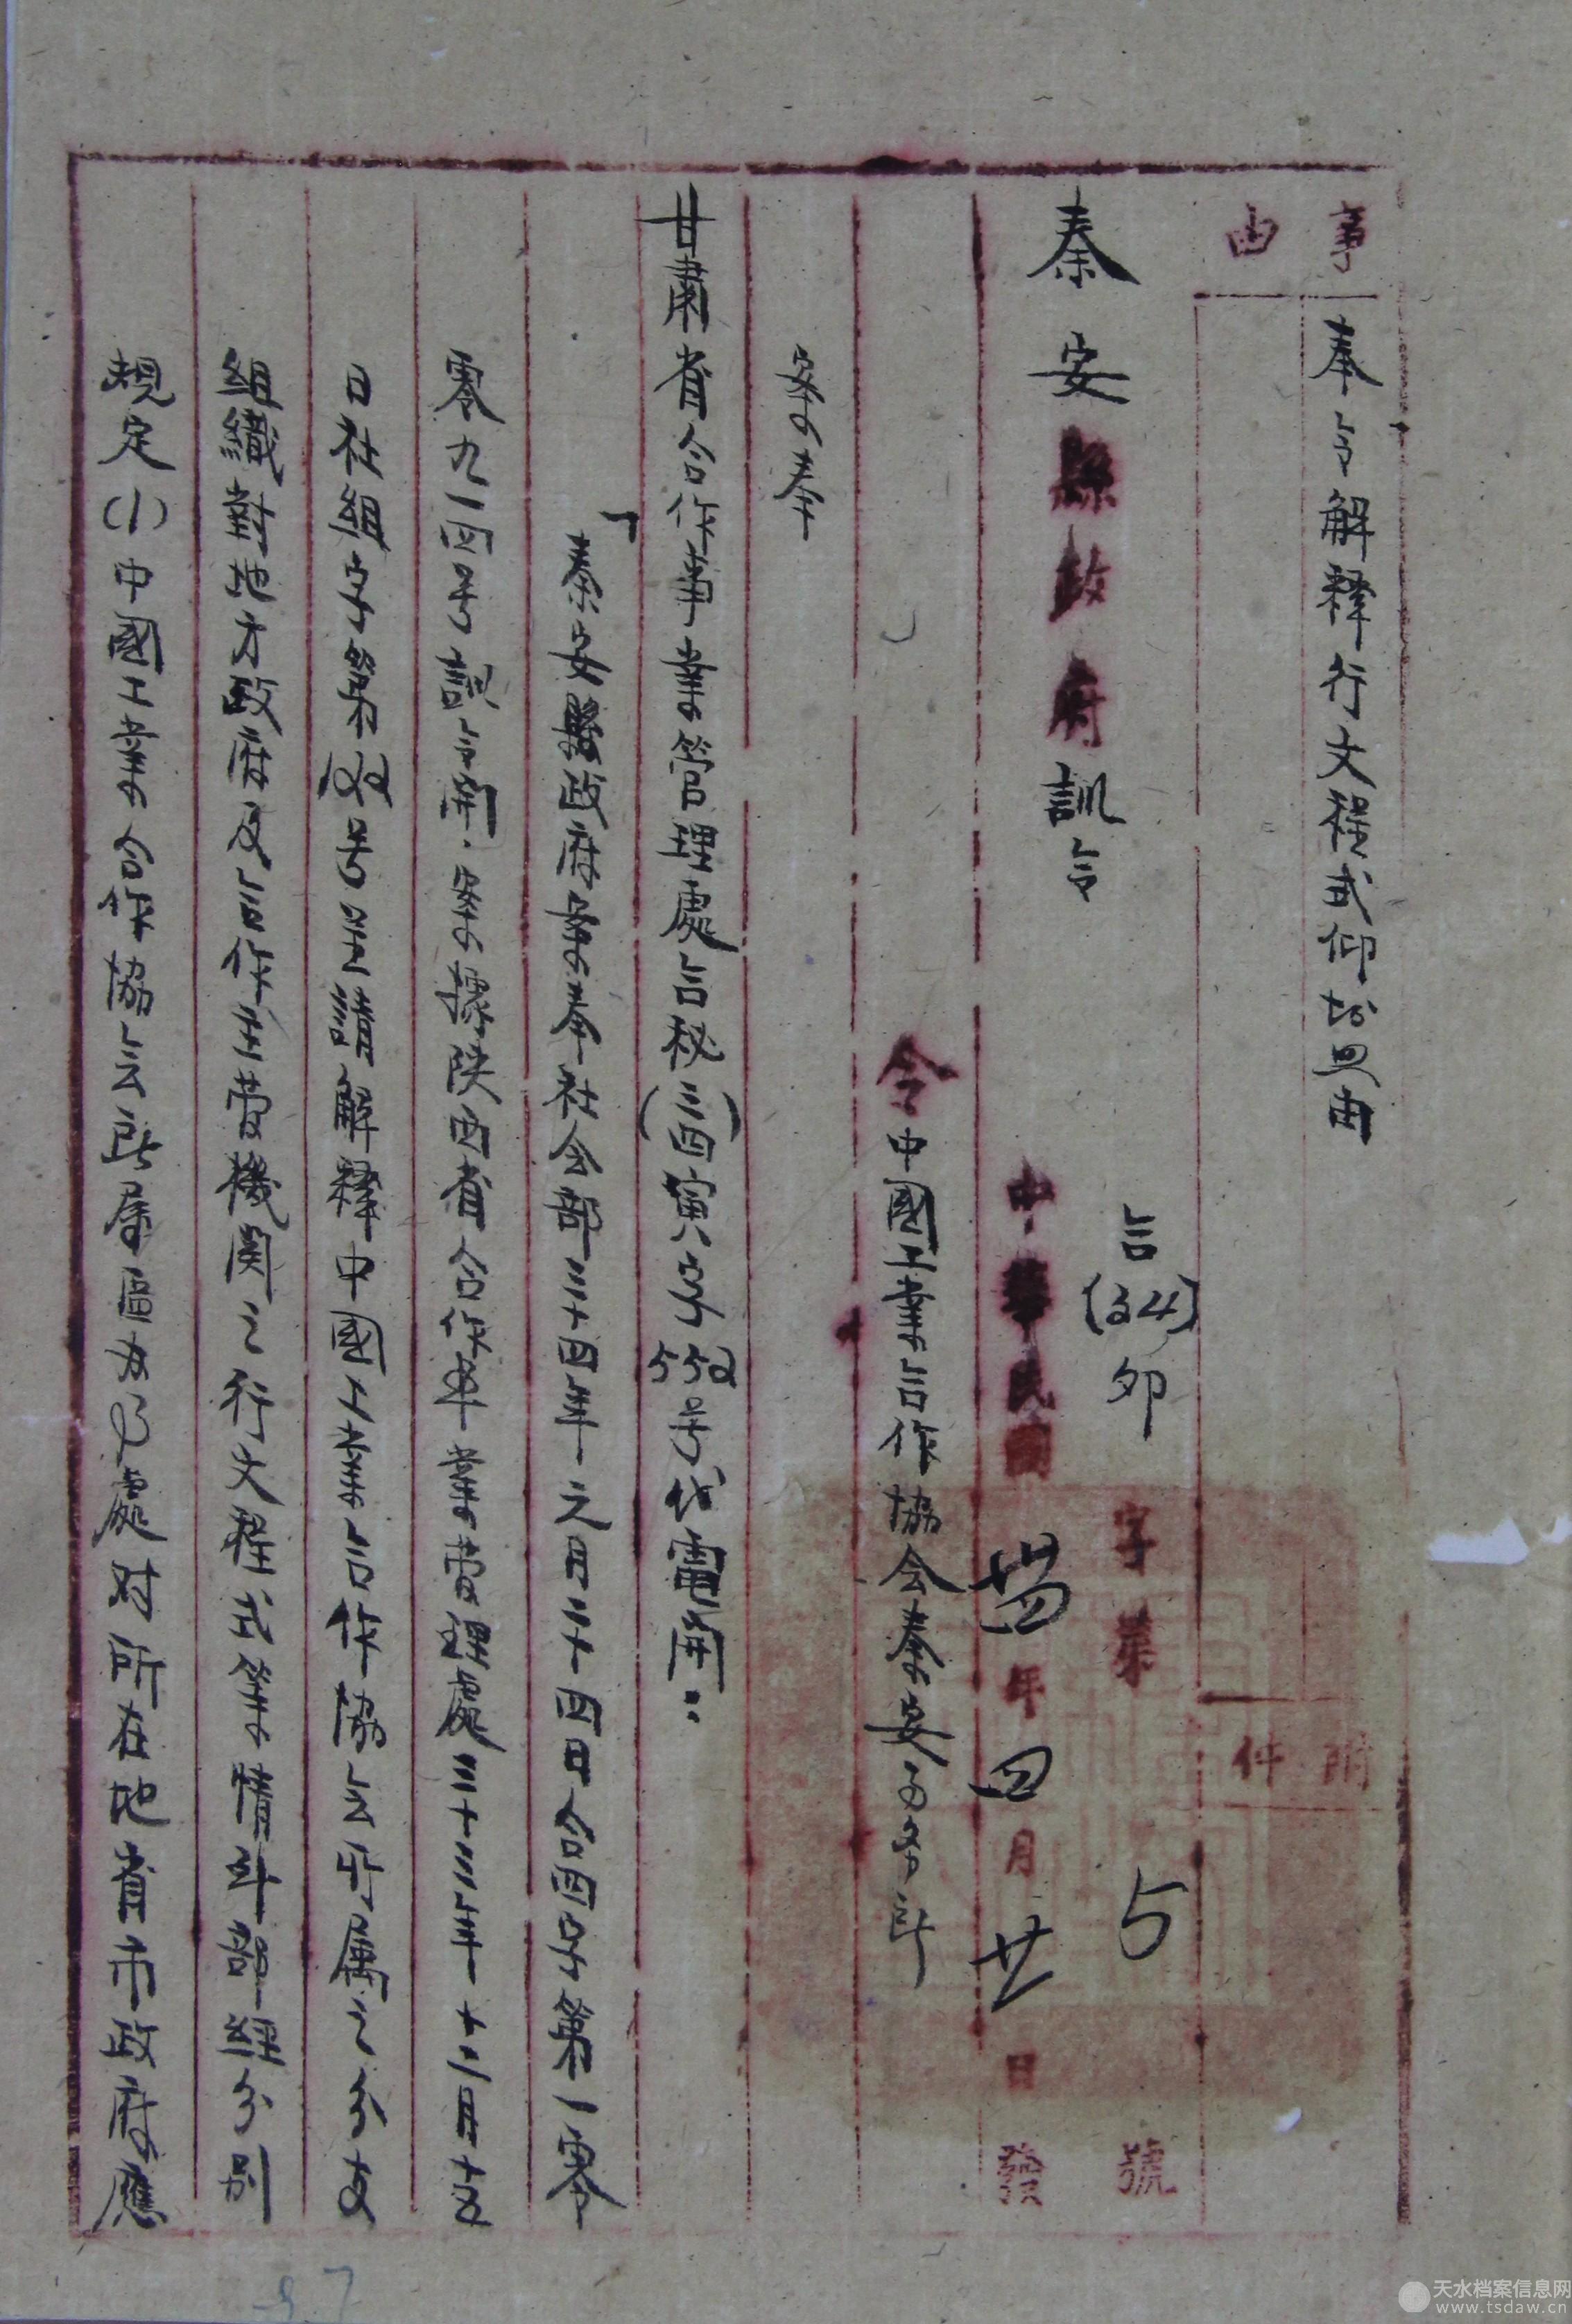 事由
奉令解釋行文程式仰知照由
附件
秦安縣政府訓令
合(34)卯字第5號
中華民國卅四年四月廿日發
令中國工業合作協会秦安事务所
案奉
甘肅省合作事業管理處合秘(三四)寅 号代電開：
「秦安縣政府案奉社会部三十四年元月二十四日合四字第一零
零九一四号訓令開．案據陝西省合作事業管理處三十三年十二月十
日社組字第 号呈請解釋中國工業合作協会所属之分支
組織對地方政府及合作主管機関之行文程式等情到部經分別
規定(1)中國工業合作協会所屬區办事處对所在地省市政府應
57
天水档案信息网
www.tsdaw.cn